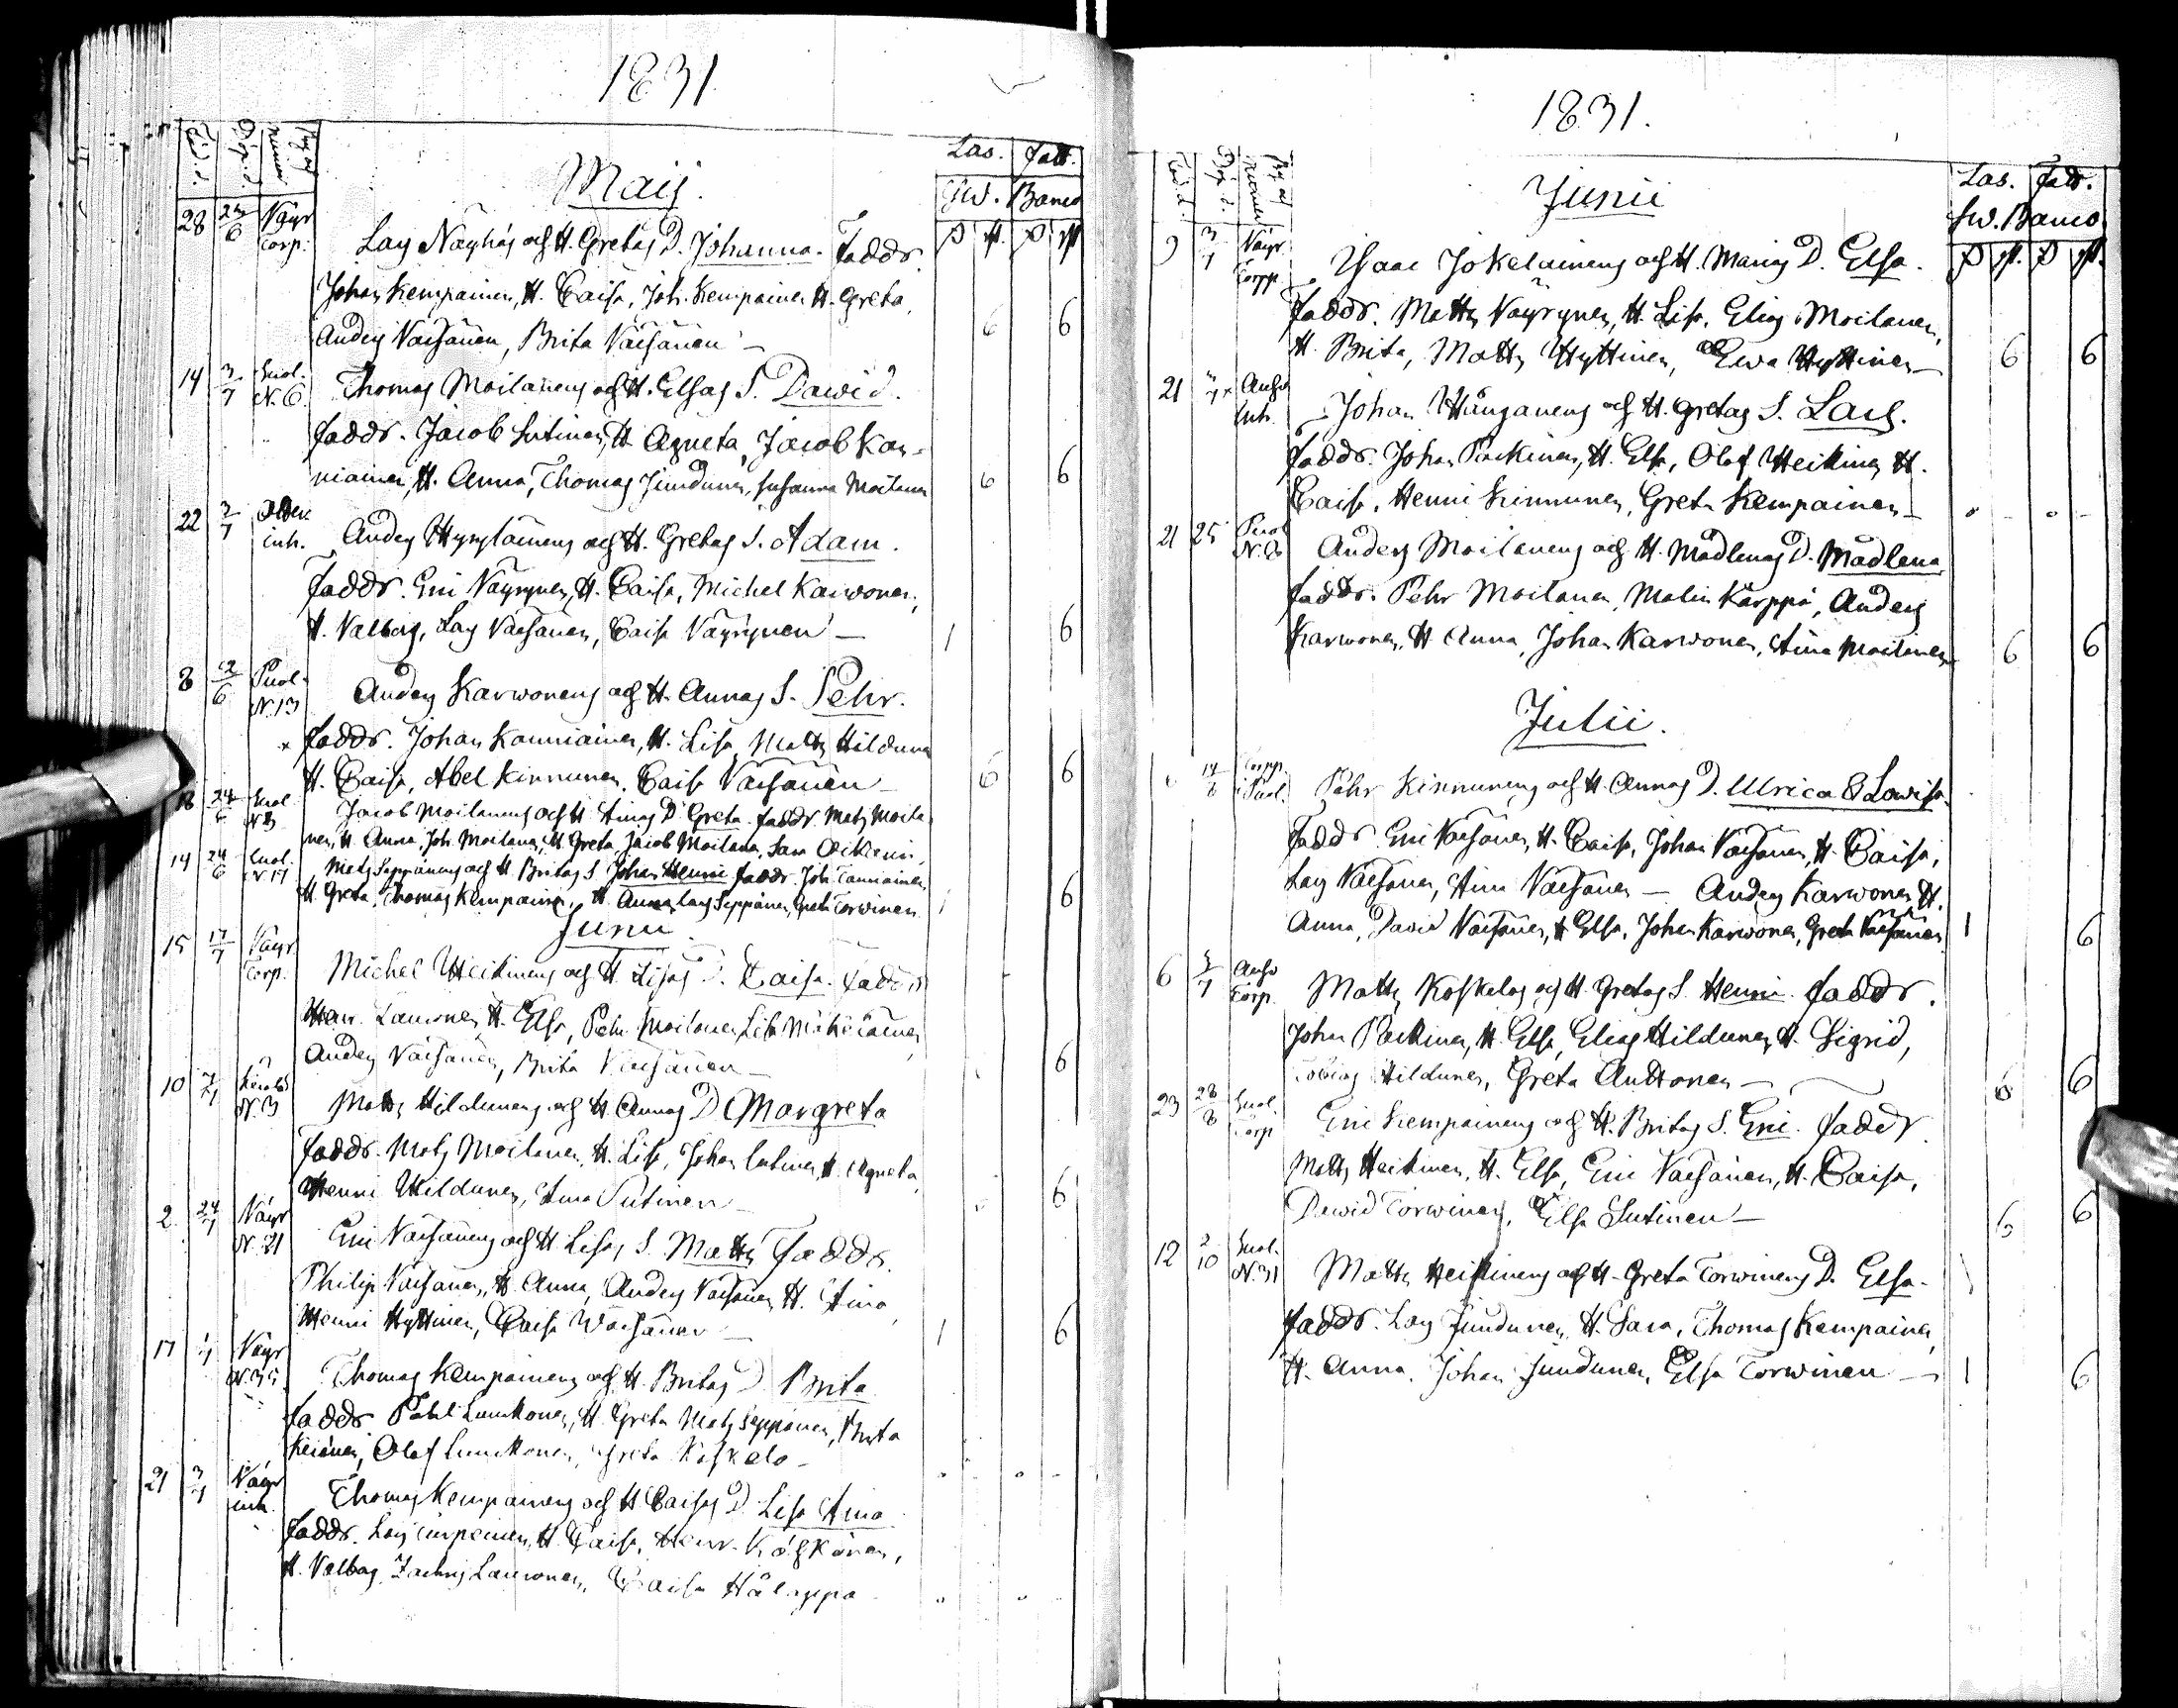 1831
Föd. d. Döp. d. By och Nummer
Las. Fatt.
Maij.
Sw. Banco
28 24/6 Näyr Torp. Lars Näyhäs och H. Gretas D. Johanna. Faddr.
Johan Kempainen, H. Caisa, Joh. Kempainen H. Greta,
Anders Väisänen, Brita Väisänen — 6 6
14 3/7 Suol. N. 6. Thomas Moilanens och H. Elsas S. Dawid.
Faddr. Jacob Sutinen, H. Agneta, Jacob Kan-
niainen, H. Anna, Thomas Jundunen, Susanna Moilanen 6 6
22 3/7 inh. Anders Hyryläinens och H. Gretas S. Adam.
Faddr. Eric Näyrynen, H. Caisa, Michel Karwonen,
H. Valborg, Lars Väisänen, Caisa Väyrynen — 1 6
8 12/6 Puol. N. 13 Anders Karwonens och H. Annas S. Pehr.
Faddr. Johan Kanniainen, H. Lisa, Matts Hildunen
H. Caisa, Abel Kinnunen, Caisa Väisänen — 6 6
18 24/6 Suol N. 3 Jacob Moilanens och H. Ainas D. Greta. Faddr. Mats Moila-
nen, H. Anna, Joh. Moilanen, H. Greta, Jacob Moilanen, Sara
14 24/6 Suol. N. 17 Mats Seppänens och H. Britas S. Johan Henric Faddr. Joh. Canniainen,
H. Greta, Thomas Kempainen, H. Anna, Lars Seppänen, Greta Torwinen 1 6
Junii
15 17/7 Näyr Torp. Michel Heikinens och H. Lisas D. Caisa. Faddr.
Henr. Lauronen, H. Elsa, Pehr Moilanen, Lisa Mikkeläinen,
Anders Väisänen, Brita Väisänen — 6
10 N. 3 Matts Hildunens och H. Annas D. Margreta
Faddr. Mats Moilanen, H. Lisa, Johan Sutinen, H. Agneta,
Henric Hildunen, Aina Sutinen — 6
2 24/7 Näyr N. 21 Eric Väisänens och H. Lisas S. Matts Faddr.
Philip Väisänen, H. Anna, Anders Väisänen, H. Aina,
Henric Hyttinen, Caisa Wäisänen — 1 6
17 Näyr N. 35 Thomas Kempainens och H. Britas D. Brita
Faddr. Påhl Lunckonen, H. Greta, Mats Seppänen, Brita
Keränen, Olof Lunckonen, Greta Koskelo —
21 3/7 Näyr inh. Thomas Kempainens och H. Caisas D. Lisa Aina
Faddr. Lars Curpeinen, H. Caisa, Henr.
H. Valborg, Zachris Lauronen, Caisa Hålappa
1831.
Föd. d. Döp. d. By och Nummer
Las. Fatt.
Junii
Sw. Banco
9 3/7 Näyr Torpp Isaac Jokelainens och H. Marias D. Elsa.
Faddr. Matts Näyrynen, H. Lisa, Elias Moilanen,
H. Brita, Matts Hyttinen, Ewa Hyttinen — 6 6
21 Inh. Johan Hånganens och H. Gretas S. Lars.
Faddr. Johan Parkinen, H. Elsa, Olof Heikinen, H.
Caisa, Henric Kinnunen, Greta Kempainen —
21 25 Puol Anders Moilanens och H. Madlenas D. Madlena
Faddr. Pehr Moilanen, Malin Karppa, Anders
Karwonen, H. Anna, Johan Karwonen, Aina Moilanen 6 6
Julii.
14/8 Torpp. i Puol. Pehr Kinnunens och H. Annas D. Ulrica & Lowisa.
Faddr. Eric Väisänen, H. Caisa, Johan Väisänen, H. Caisa,
Lars Väisänen, Aina Väisänen — Anders Karwonen H.
Anna, David Väisänen, H. Elsa, Johan Karwonen, Greta Väisänen 1 6
6 3/7 Torp. Matts Koskelos och H. Gretas S. Henric. Faddr.
Johan Parkinen, H. Elsa, Elias Hildunen, H. Sigrid,
Tobias Hildunen, Greta Anttonen — 6 6
23 28/8 Suol. Torp Eric Kempainens och H. Britas S. Eric. Faddr.
Matts Heikinen, H. Elsa, Eric Väisänen, H. Caisa,
Dawid Torwinen, Elsa Sutinen — 6 6
12 2/10 Suol. N. 31 Matts Heikinens och H. Greta Torwinens D. Elsa.
Faddr. Lars Jundunen, H. Sara, Thomas Kempainen,
H. Anna, Johan Jundunen, Elsa Torwinen — 1 6